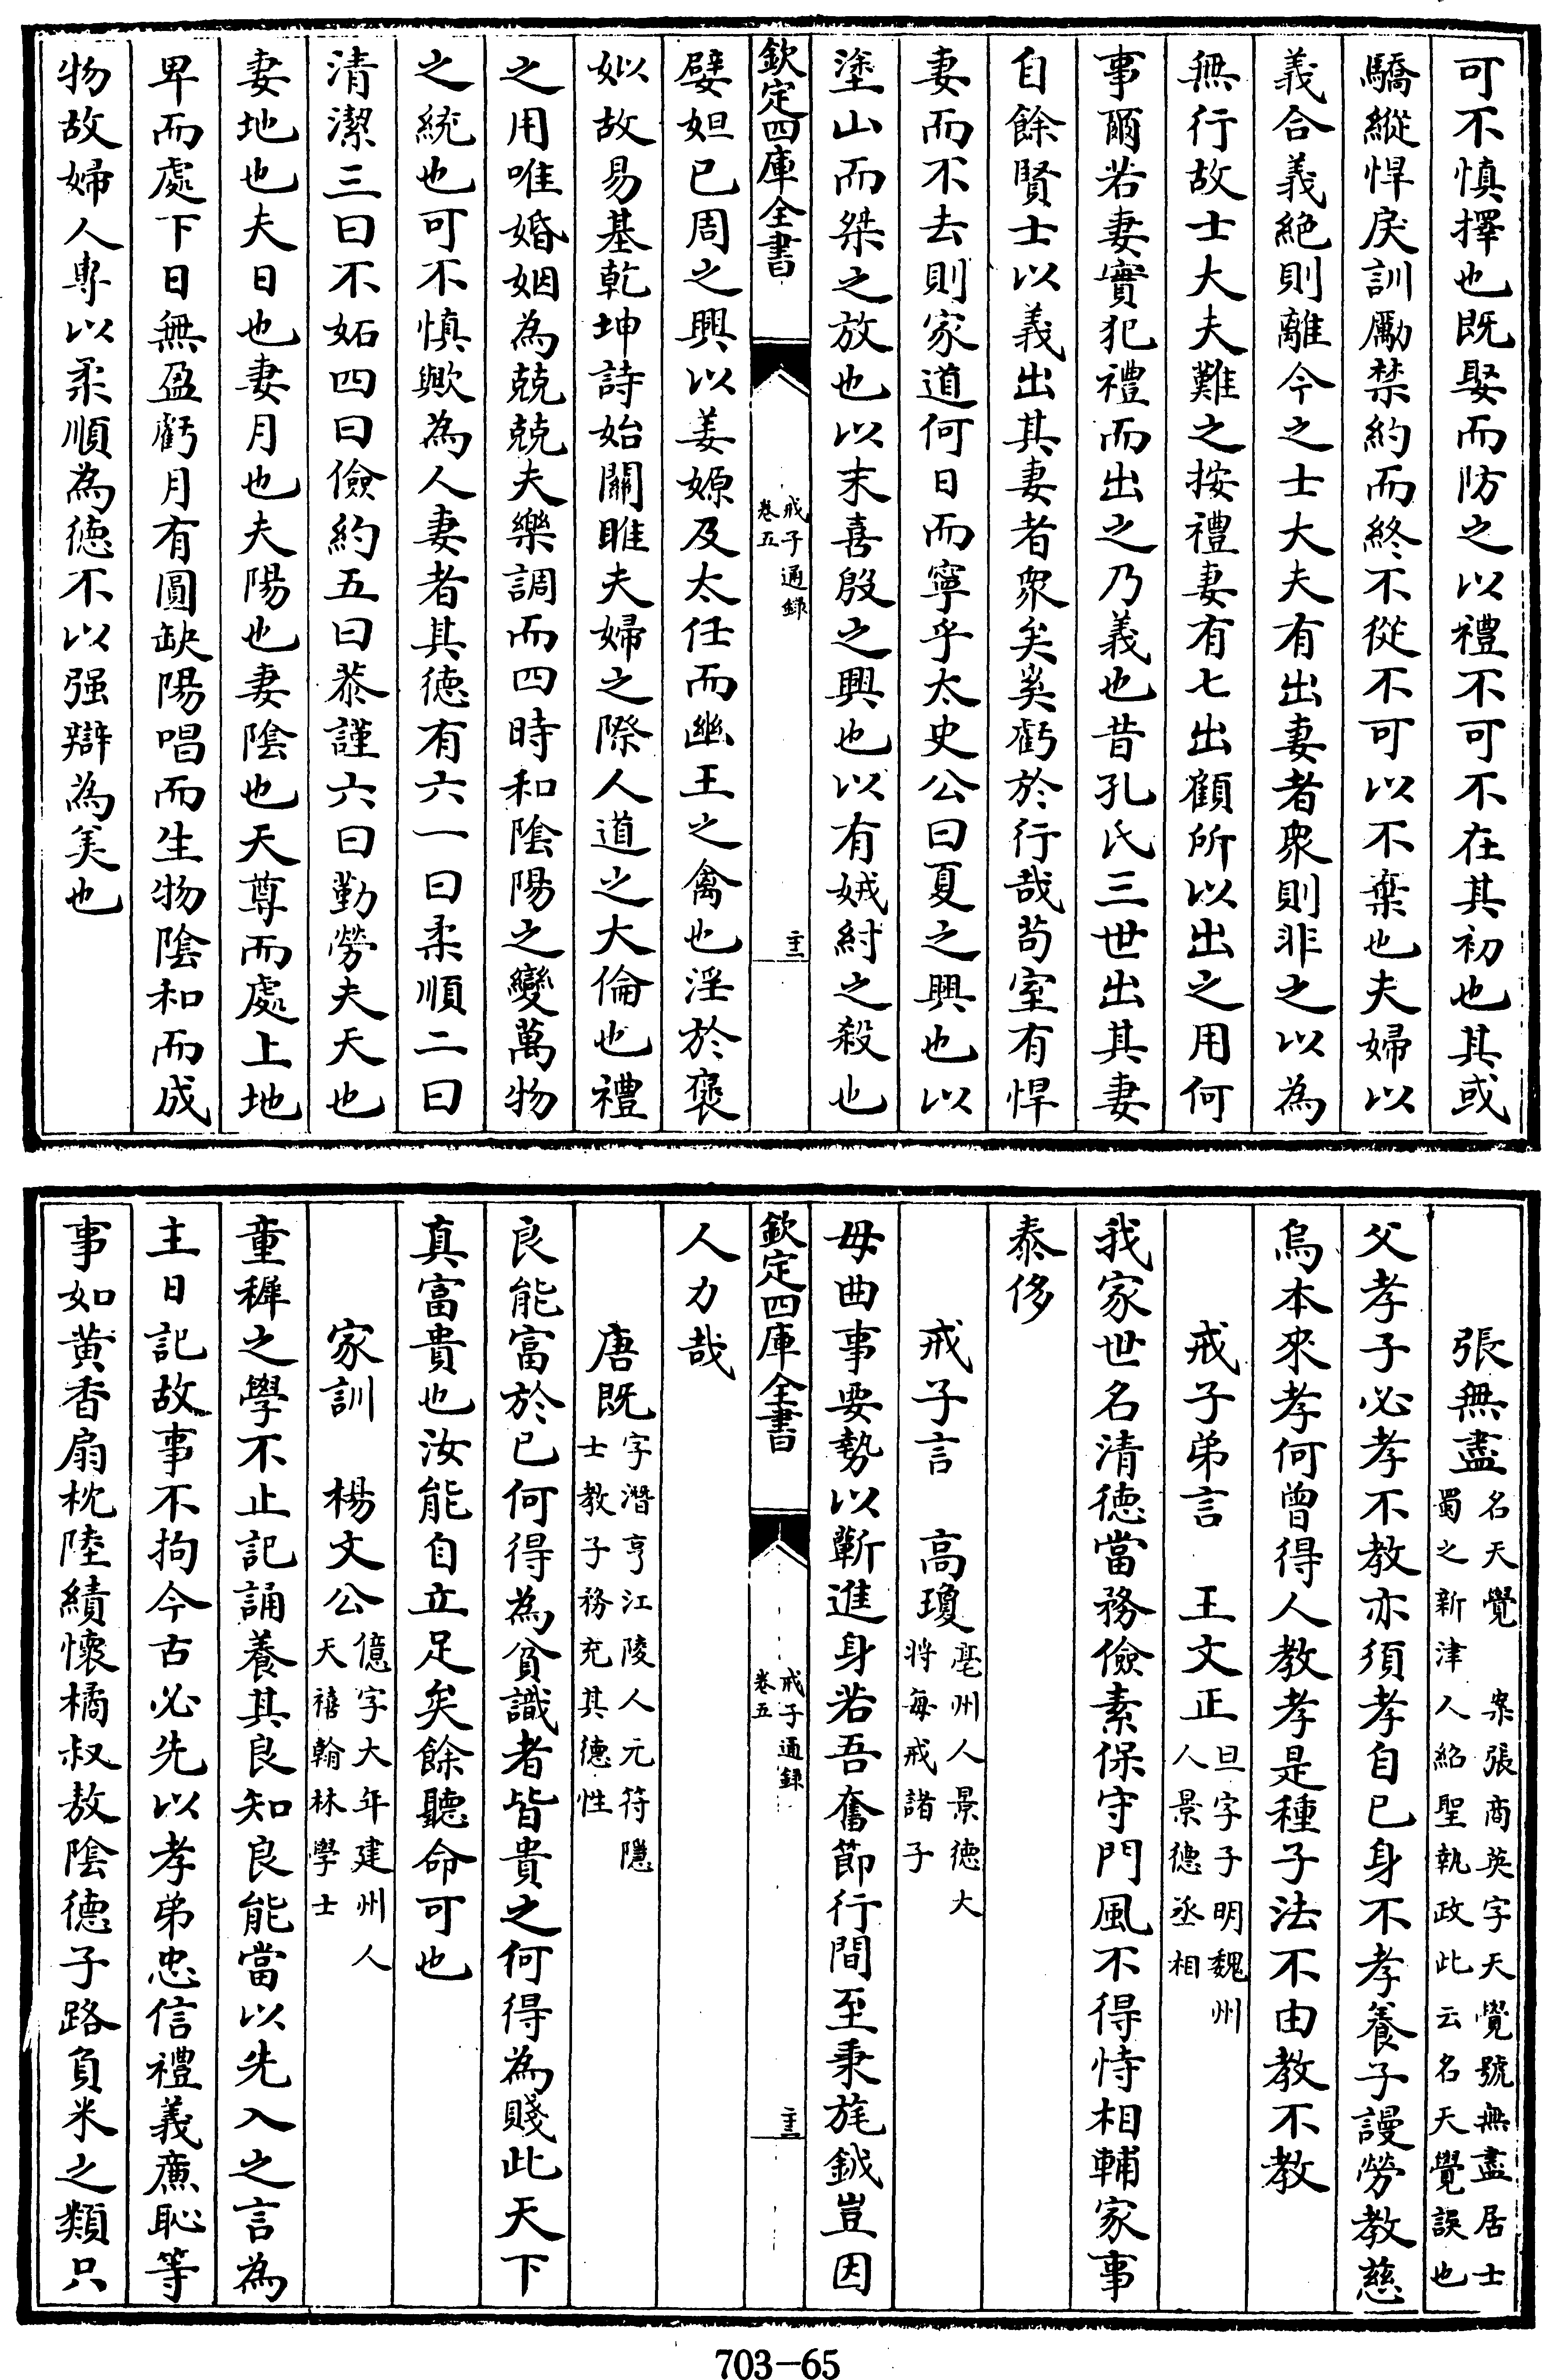 可不慎擇也既娶而防之以禮不可不在其初也其或
驕縱悍戾訓厲禁約而終不從不可以不棄也夫婦以
義合義絶則離今之士大夫有出妻者衆則非之以為
無行故士大夫難之按禮妻有七出顧所以出之用何
事爾若妻實犯禮而出之乃義也昔孔氏三世出其妻
自餘賢士以義出其妻者衆矣奚虧於行哉苟室有悍
妻而不去則家道何日而寧乎太史公曰夏之興也以
塗山而桀之放也以末喜殷之興也以有娀紂之殺也
欽定四庫全書
戒子通録
卷五
嬖妲己周之興以姜嫄及太任而幽王之禽也淫於褒
姒故易基乾坤詩始關雎夫婦之際人道之大倫也禮
之用唯婚姻為兢兢夫樂調而四時和陰陽之變萬物
之統也可不慎歟為人妻者其德有六一曰柔順二曰
清潔三曰不妬四曰儉約五曰恭謹六曰勤勞夫天也
妻地也夫日也妻月也夫陽也妻陰也天尊而處上地
卑而處下日無盈虧月有圓缺陽唱而生物陰和而成
物故婦人專以柔順為德不以强辯為美也
張無盡名天覺 案張商英字天覺號無盡居士
蜀之新津人紹聖執政此云名天覺誤也
父孝子必孝不教亦須孝自己身不孝養子謾勞教慈
烏本來孝何曾得人教孝是種子法不由教不教
戒子弟言 王文正旦字子明魏州
人景德丞相
我家世名清德當務儉素保守門風不得恃相輔家事
泰侈
戒子言 高瓊亳州人景德大
將每戒諸子
毋曲事要勢以蘄進身若吾奮節行間至秉旄鉞豈因
欽定四庫全書
戒子通録
卷五
人力哉
唐既字潛亨江陵人元符隱
士教子務充其德性
良能富於己何得為貧識者皆貴之何得為賤此天下
真富貴也汝能自立足矣餘聽命可也
家訓 楊文公億字大年建州人
天禧翰林學士
童穉之學不止記誦養其良知良能當以先入之言為
主日記故事不拘今古必先以孝弟忠信禮義廉恥等
事如黄香扇枕陸績懷橘叔敖陰德子路負米之類只
703-65